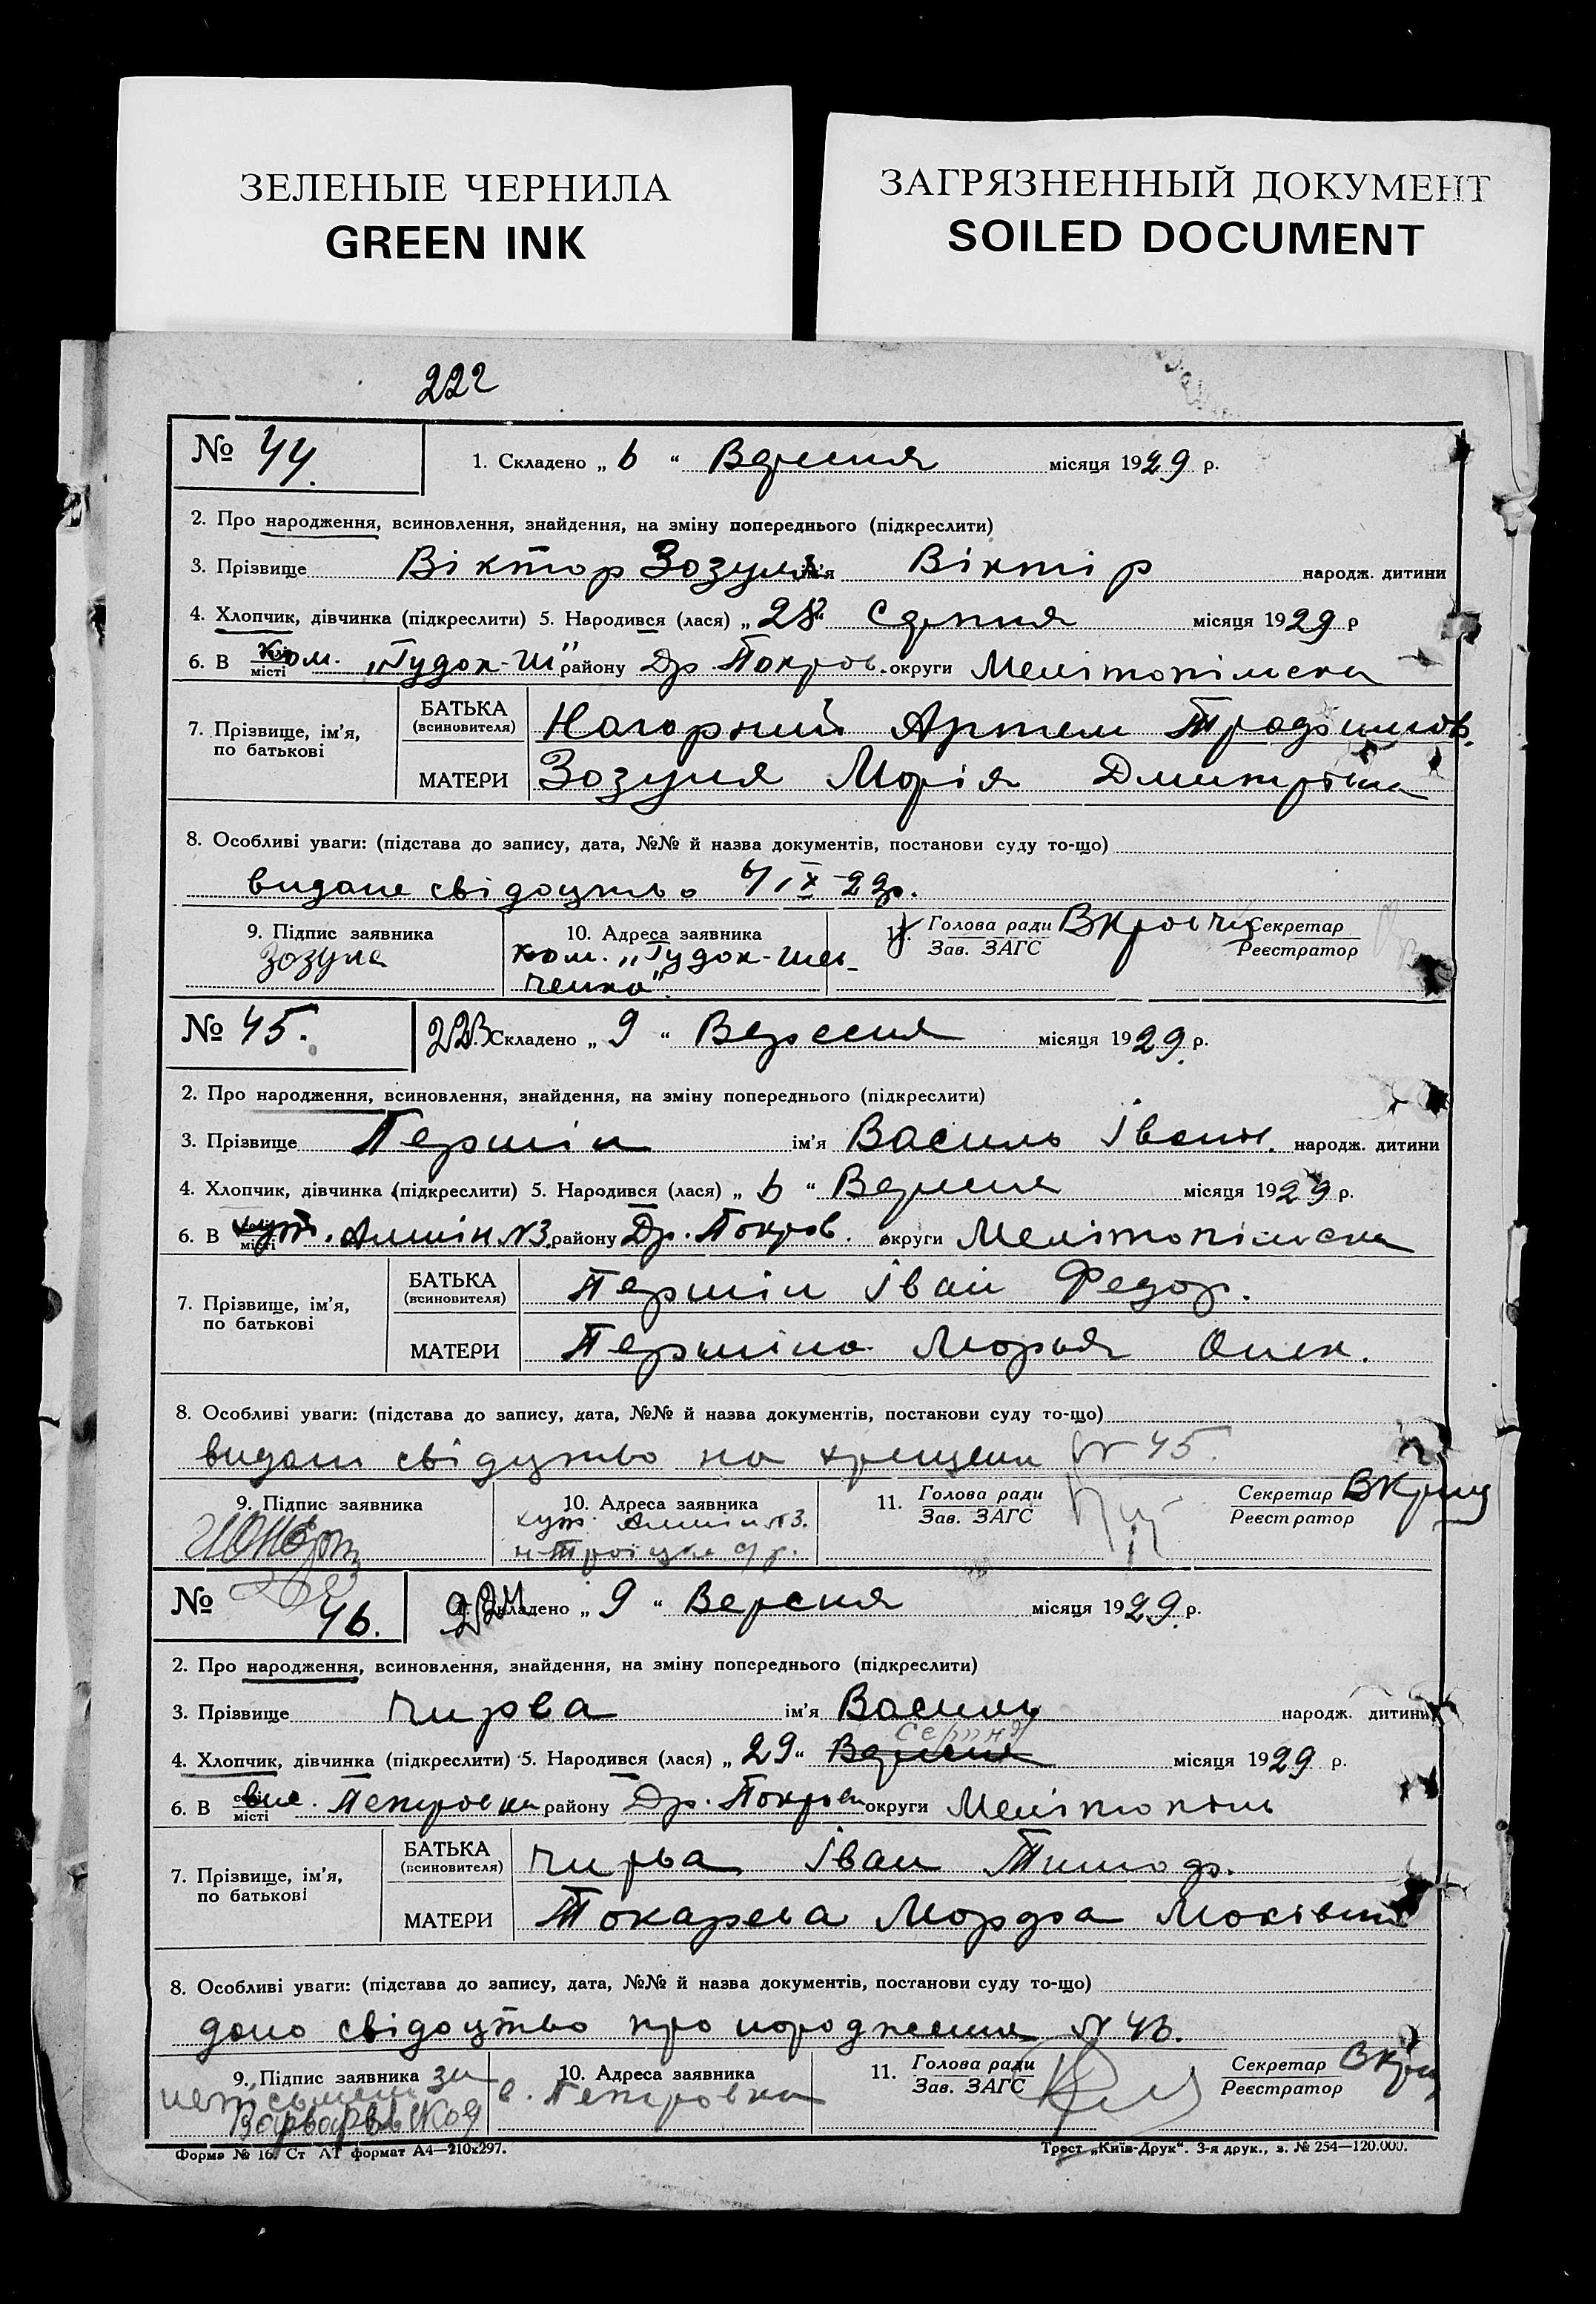 ЗЕЛЕНЫЕ ЧЕРНИЛА
GREEN INK
ЗАГРЯЗНЕННЫЙ ДОКУМЕНТ
SOILED DOCUMENT
222
№ 44. 1. Складено „ 6 “ Вересня місяця 1929 р.
2. Про народження, всиновлення, знайдення, на зміну попереднього (підкреслити)
3. Прізвище Віктор Зозуля ім'я Віктір народж. дитини
4. Хлопчик, дівчинка (підкреслити) 5. Народився (лася) „ 28 “ Серпня місяця 1929 р
6. В місті ком. „Гудок-Ш“ району Др. Покров. округи Мелітопільска
7. Прізвище, ім'я, по батькові
БАТЬКА (всиновителя) Нагорний Артем
МАТЕРИ Зозуля Марія Дмитрівна
8. Особливі уваги: (підстава до запису, дата, №№ й назва документів, постанови суду то-що)
видане свідоцтво 6/IX 29р.
9. Підпис заявника 10. Адреса заявника 11. Голова ради Секретар
Зав. ЗАГС Реєстратор
Зозуля ком. „Гудок-Шев-
ченко“
№ 45. 223 Складено „ 9 “ Вересеня місяця 1929 р.
2. Про народження, всиновлення, знайдення, на зміну попереднього (підкреслити)
3. Прізвище Першін ім'я Василь Іван. народж. дитини
4. Хлопчик, дівчинка (підкреслити) 5. Народився (лася) „ 6 “ Вересня місяця 1929 р.
6. В місті хут. №3 району Др. Покров. округи Мелітопільска
7. Прізвище, ім'я, по батькові
БАТЬКА (всиновителя) Першін Іван Федор.
МАТЕРИ Першіна Марья Олек.
8. Особливі уваги: (підстава до запису, дата, №№ й назва документів, постанови суду то-що)
видани свідуцтво на хрещени № 45.
9. Підпис заявника 10. Адреса заявника 11. Голова ради Секретар
Зав. ЗАГС Реєстратор
хут. №3.
№ 46. 224 Складено „ 9 “ Версня місяця 1929 р.
2. Про народження, всиновлення, знайдення, на зміну попереднього (підкреслити)
3. Прізвище Чирва ім'я Василь народж. дитини
серпня
4. Хлопчик, дівчинка (підкреслити) 5. Народився (лася) „ 29 “ Вересня місяця 1929 р.
6. В місті Петровка району Др. Покров округи Мелітопіль
7. Прізвище, ім'я, по батькові
БАТЬКА (всиновителя) Чирва Іван Тимоф.
МАТЕРИ Токарева Марфа
8. Особливі уваги: (підстава до запису, дата, №№ й назва документів, постанови суду то-що)
дано свідоцтво про народження № 46.
9. Підпис заявника за 10. Адреса заявника 11. Голова ради Секретар
Зав. ЗАГС Реєстратор
с. Петровка
Форма № 16. Ст АТ формат А4—210x297. Трест „Київ-Друк“. 3-я друк., з. № 254—120.000.